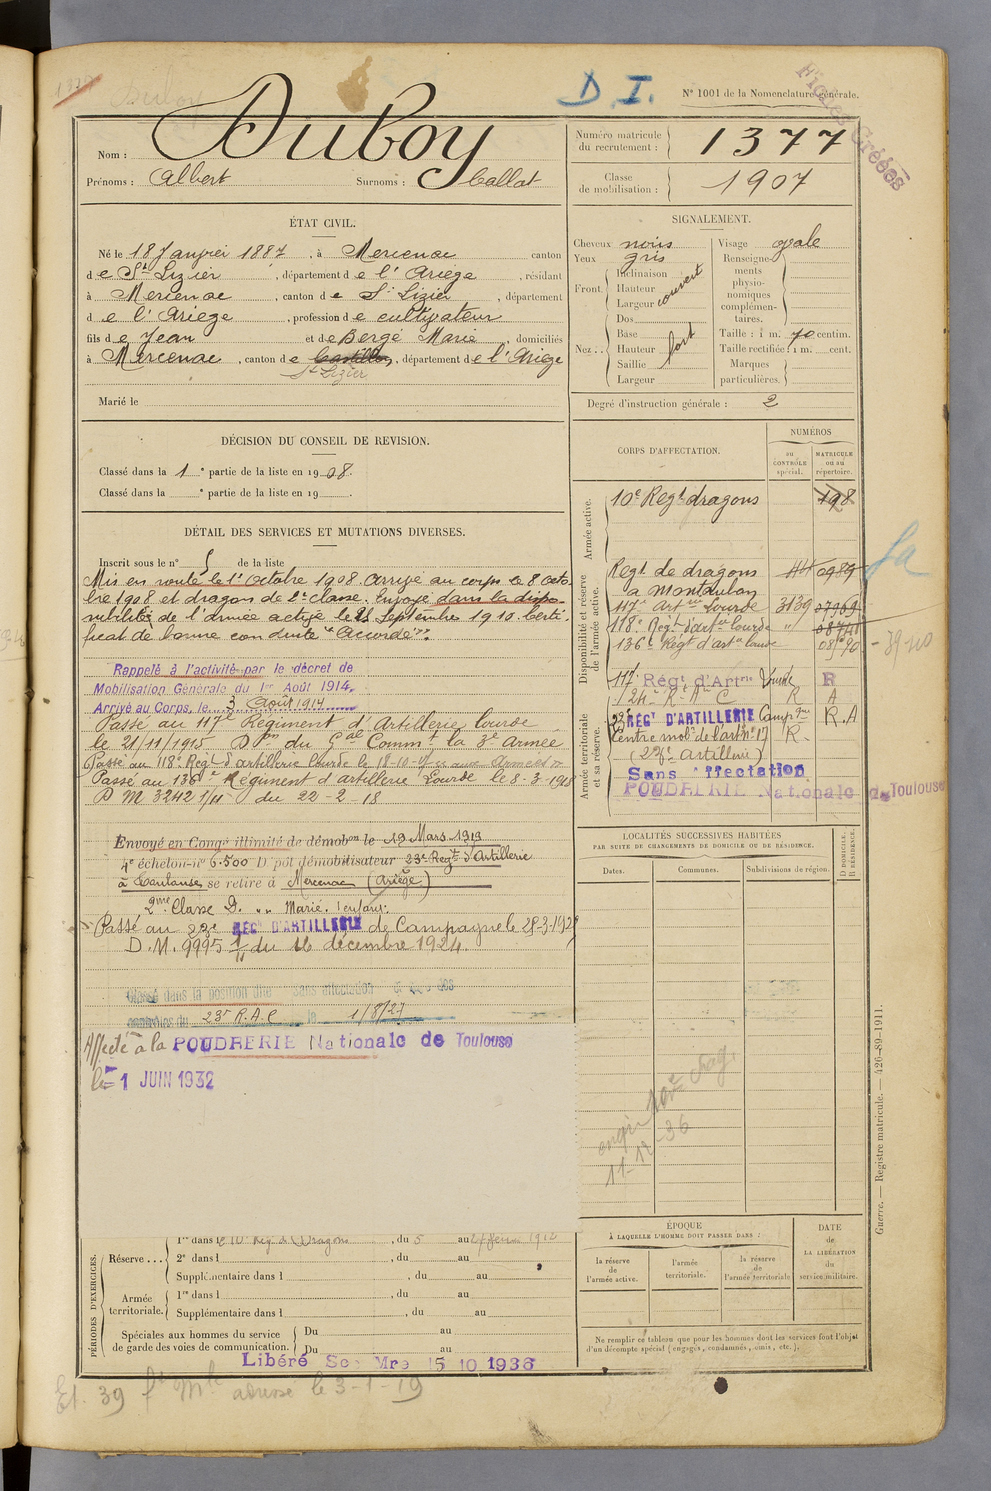 D.I.
N° 1001 de la Nomenclature générale.
Fiches Créées
Nom : Duboy
Prénoms : Albert Surnoms : Callat
Numéro matricule du recrutement : 1377
Classe de mobilisation : 1907
ÉTAT CIVIL.
Né le 18 Janvier 1887, à Mercenac canton
de St Lizier, département de l'Ariège, résidant
à Mercenac, canton de St Lizier, département
de l'Ariège, profession de cultivateur
fils de Jean et de Bergé Marie, domiciliés
à Mercenac, canton de Castillon, département de l'Ariège
St Lizier
Marié le
SIGNALEMENT.
Cheveux noirs
Yeux gris
Front. Inclinaison
Hauteur
Largeur
couvert
Nez.. Dos
Base
Hauteur
Saillie
Largeur
fort
Visage ovale
Renseignements physionomiques complémentaires.
Taille : 1 m. 70 centim.
Taille rectifiée : 1 m. cent.
Marques particulières.
Degré d'instruction générale : 2
DÉCISION DU CONSEIL DE REVISION.
Classé dans la 1e partie de la liste en 1908.
Classé dans la e partie de la liste en 19 .
DÉTAIL DES SERVICES ET MUTATIONS DIVERSES.
Inscrit sous le n° 5 de la liste
Mis en route le 1er Octobre 1908. Arrivé au corps le 8 octo-
bre 1908 et dragon de 2e classe. Envoyé dans la dispo-
nibilité de l'armée active le 25 septembre 1910. Certi-
ficat de bonne conduite "Accordé".
Rappelé à l'activité par le décret de
Mobilisation Générale du 1er Août 1914.
Arrivé au Corps, le 3 Août 1914
Passé au 117e Régiment d'Artillerie lourde
le 21/11/1915 Don du Gal Commt la 3e Armée
Passé au 118e Régt d'artillerie lourde le 18-10-17 "aux Armées"
Passé au 136e Régiment d'artillerie Lourde le 8-3-1918
D M 3242 1/11 du 22-2-18
Envoyé en Congé illimité de démobon le 19 Mars 1919
4e échelon-n° 6.500 Dépôt démobilisateur 23e Regt d'Artillerie
à Toulouse se retire à Mercenac (Ariège)
2me Classe D. " " Marié. 1 enfant.
Passé au 23e RÉGt D'ARTILLERIE de Campagne le 28-3-192
D.M. 9995 1/11 du 16 décembre 1924.
Classé dans la position dite sans affectation
contrôles du 23e R.A.C le 1/8/27
Affecté à la POUDRERIE Nationale de Toulouse
le 1 JUIN 1932
CORPS D'AFFECTATION.
NUMÉROS
au CONTRÔLE spécial.
MATRICULE ou au répertoire.
Armée active.
10e Regt dragons 198
Disponibilité et réserve de l'armée active.
Regt de dragons 0989
a Montauban
117e Artie Lourde 3139 07969
118e Régt d'arte lourde "
136e Régt d'arte lourde
39-40
Armée territoriale et sa réserve.
117e Régt d'Artrie Lourde R
R A
23e RÉGt D'ARTILLERIE Campgne R.A
Centre mobre de l'artie n° 17 R.
(23e artillerie)
Sans Affectation
POUDRERIE Nationale de Toulouse
LOCALITÉS SUCCESSIVES HABITÉES
PAR SUITE DE CHANGEMENTS DE DOMICILE OU DE RÉSIDENCE.
D DOMICILE.
R RÉSIDENCE.
Dates.
Communes.
Subdivisions de région.
11-12-36
PÉRIODES D'EXERCICES.
Réserve... 1re dans le 10e Rég. de Dragons, du 5 au
2e dans l , du au
Supplémentaire dans l , du au
Armée territoriale. 1re dans l , du au
Supplémentaire dans l , du au
Spéciales aux hommes du service de garde des voies de communication.
Du au
Du au
Libéré Sce Mre 15 10 1936
ÉPOQUE
À LAQUELLE L'HOMME DOIT PASSER DANS :
la réserve de l'armée active.
l'armée territoriale.
la réserve de l'armée territoriale
DATE DE LA LIBÉRATION du service militaire.
Ne remplir ce tableau que pour les hommes dont les services font l'objet
d'un décompte spécial (engagés, condamnés, omis, etc.).
Guerre. — Registre matricule. — 426-89-1911.
Et. 39 adressé le 3-1-19